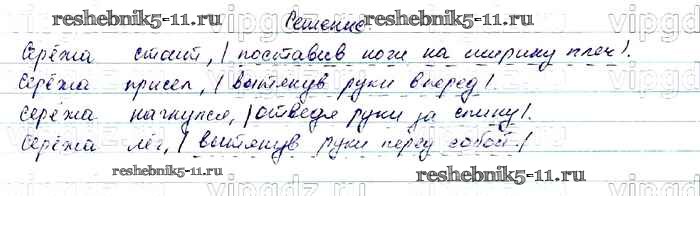 reshebnik5-11.ru reshebnik5-11.ru
Решение.
Серёжа стоит, |поставив ноги на ширину плеч|.
Серёжа присел, |вытянув руки вперед|.
Серёжа нагнулся, |отведя руки за спину|.
Серёжа лёг, |вытянув руки перед собой|
reshebnik5-11.ru reshebnik5-11.ru